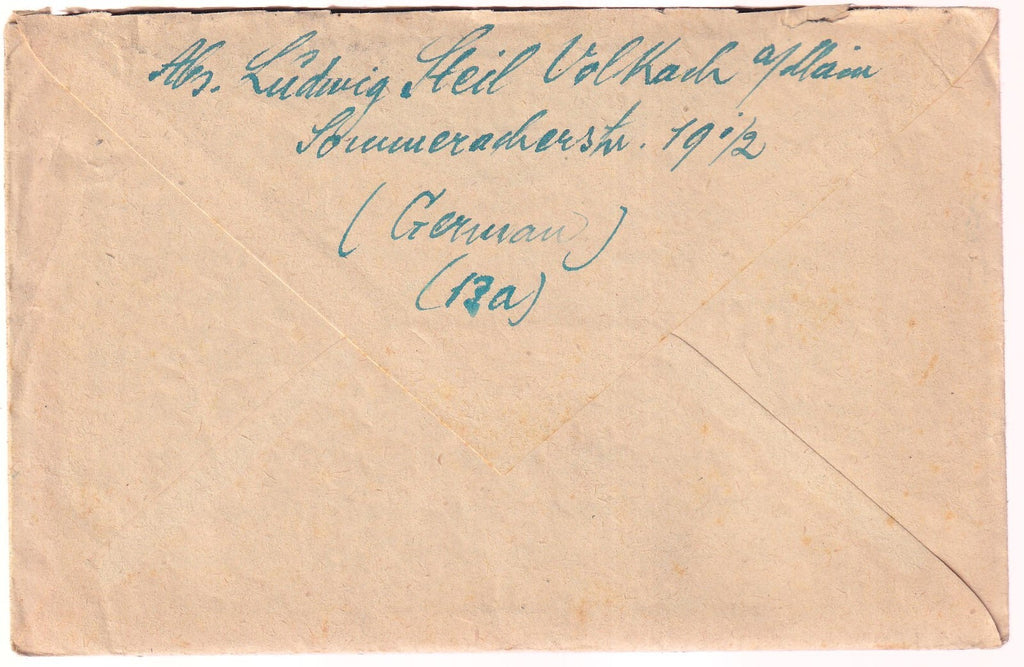 Abs. Ludwig Steil Volkach a/Main
Sommeracherstr. 19 1/2
(German)
(13a)